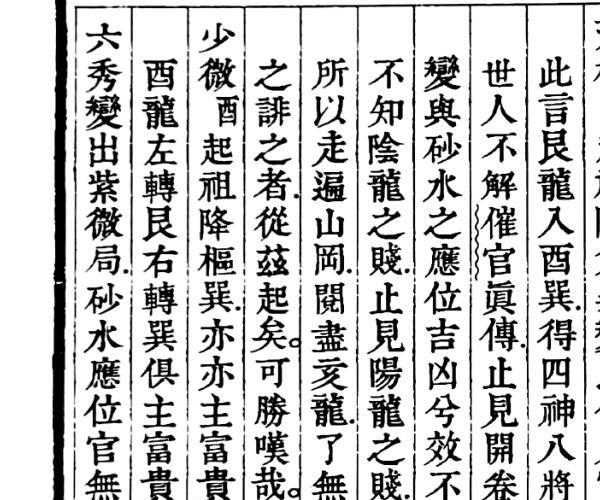 此言艮龍入酉巽.得四神八將
世人不解催官眞傳.止見開卷
變與砂水之應位吉凶兮效不
不知陰龍之賤.止見陽龍之賤.
所以走遍山岡.閱盡亥龍.了無
之誹之者.從茲起矣。可勝嘆哉。
少微酉起祖降樞巽.亦亦主富貴
酉龍左轉艮右轉巽俱主富貴
六秀變出紫微局.砂水應位官無